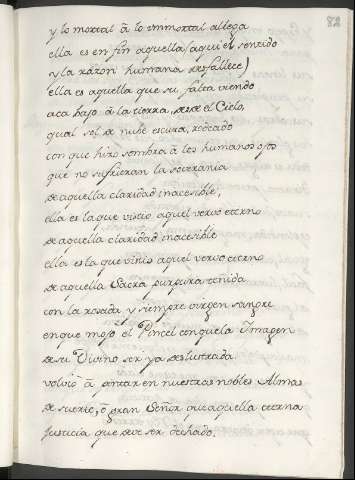 82
y lo mortal â lo immortal allega
ella es en fin aquella (aqui el sentido
y la razon humana desfallece)
ella es aquella que su falta viendo
aca bajo â la tierra, desde el Cielo,
qual sol de nube escura, rodeado
con que hizo sombra â los humanos ojos
que no sufrieran la soverania
de aquella claridad inacesible,
ella es la que vistio aquel vervo eterno
de aquella claridad inacesible
ella es la que vistio aquel vervo eterno
de aquella Sacra purpura teñida
con la rosada y siempre virgen sangre
en que mojo el Pincel con que la Ymagen
de su Divino ser ya deslustrada
volvio â pintar en nuestras nobles Almas
de suerte, ô gran Señor que aquella eterna
Justicia que deve ser dechado.